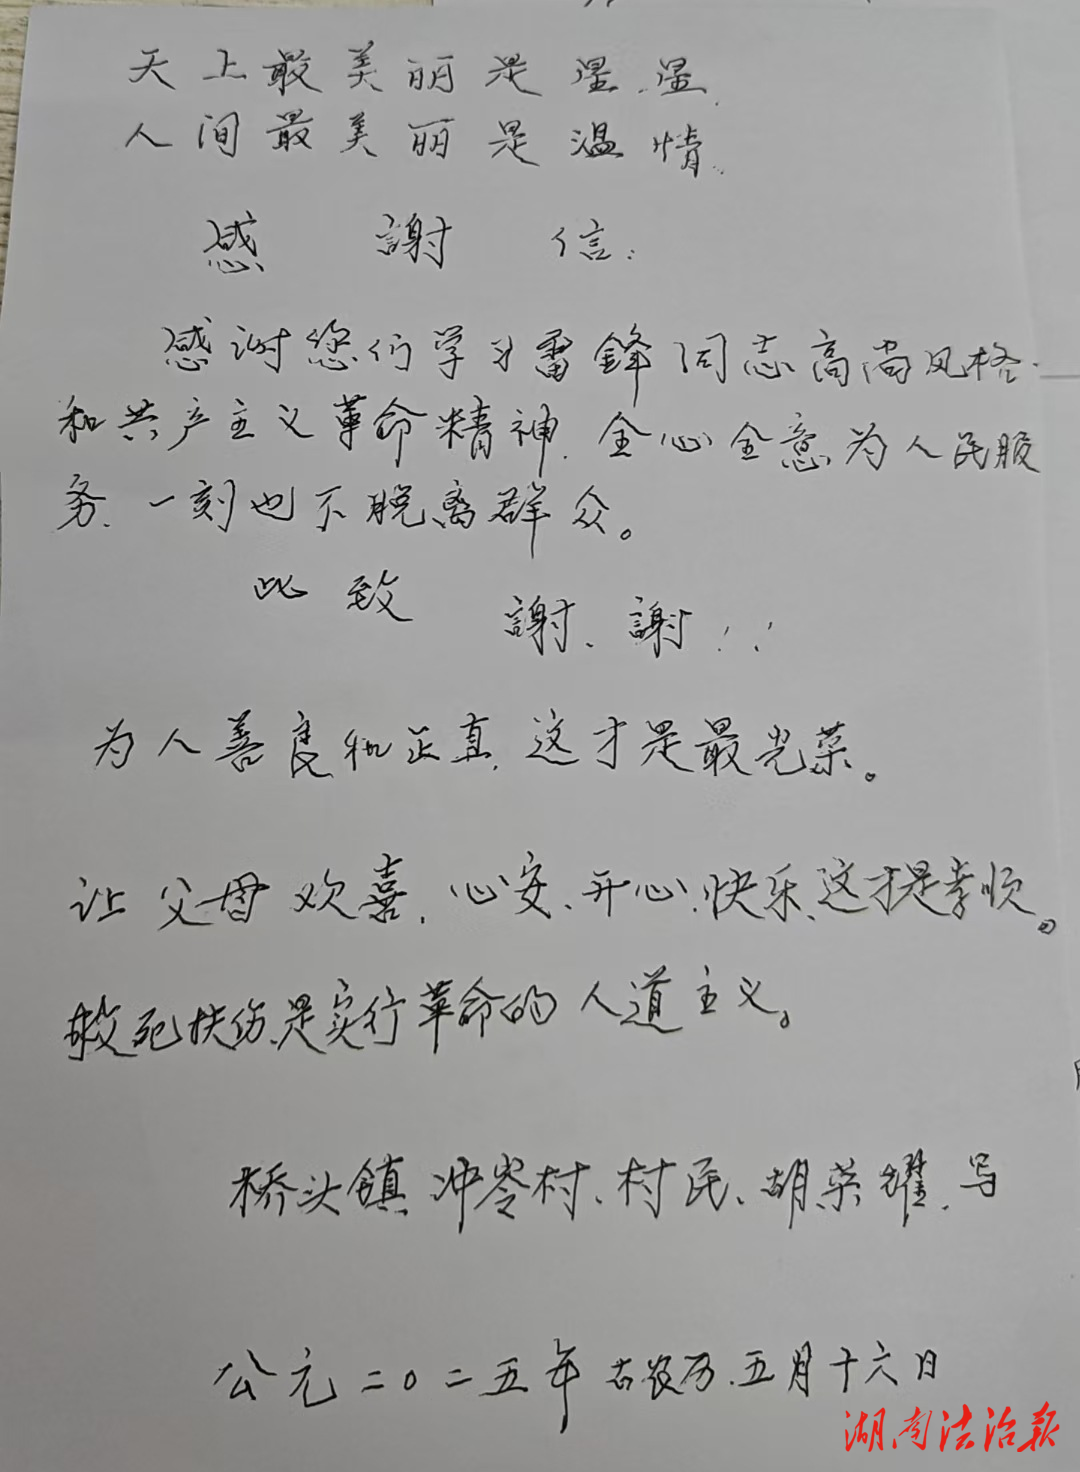 天上最美丽是星.星.
人间最美丽是温情.
感 謝 信:
感谢您们学习雷鋒同志高尚风格.
和共产主义革命精神.全心全意为人民服
务.一刻也不脱离群众。
此致
謝.謝!!
为人善良和正直.这才是最光荣。
让父母欢喜.心安、开心.快乐、这才是孝顺。
救死扶伤.是实行革命的人道主义。
桥头镇冲岺村、村民、胡荣耀.写
公元二〇二五年古农历.五月十六日
湖南法治报